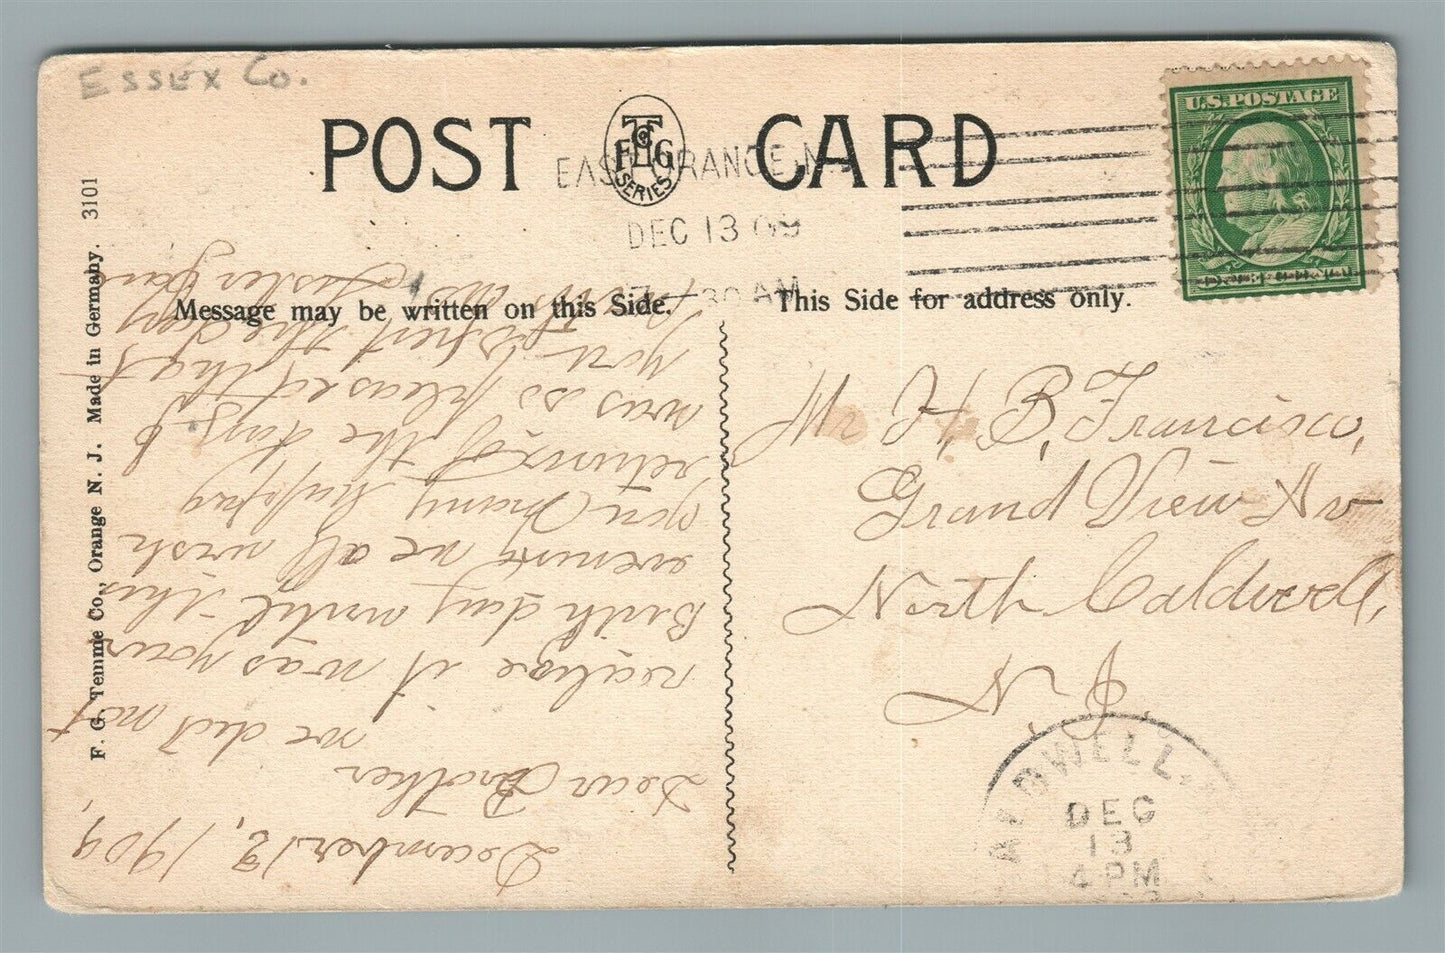 ESSEX Co.
POST CARD
T Co
F G
SERIES
U.S. POSTAGE
EAST ORANGE, N.
DEC 13 09
7-30 AM
Message may be written on this Side.
This Side for address only.
F. G. Temme Co., Orange N. J. Made in Germany. 3101
Mr H. B. Francisco,
Grand View Av
North Caldwell,
N. J.
CALDWELL, N.
DEC
13
4 PM
December 12, 1909,
Dear Brother
we did not
realize it was your
Birth day until this
evening we all wish
you many happy
returns of the days &
was so pleased that
you spent the day
with us Sister Jane